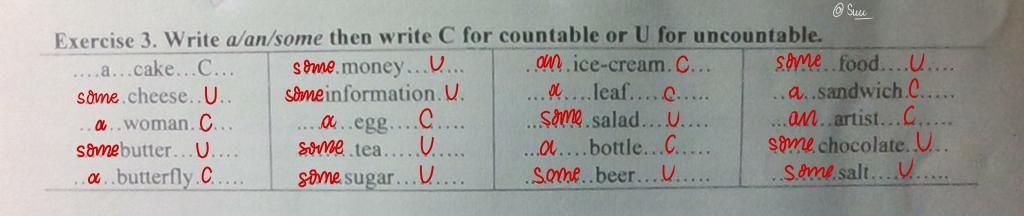 @ Suu
Exercise 3. Write a/an/some then write C for countable or U for uncountable.
....a...cake...C... some.money...U.... an.ice-cream.C... some..food....U.....
some.cheese..U.. some information.U. ...a....leaf.....C..... ..a..sandwich.C.....
..a..woman.C... ...a..egg....C..... ..some.salad...U..... ...an..artist...C.....
some butter...U..... some..tea.....U..... ..a....bottle...C..... some.chocolate..U...
..a..butterfly.C..... some.sugar...U..... .some..beer...U...... ..some.salt....U......